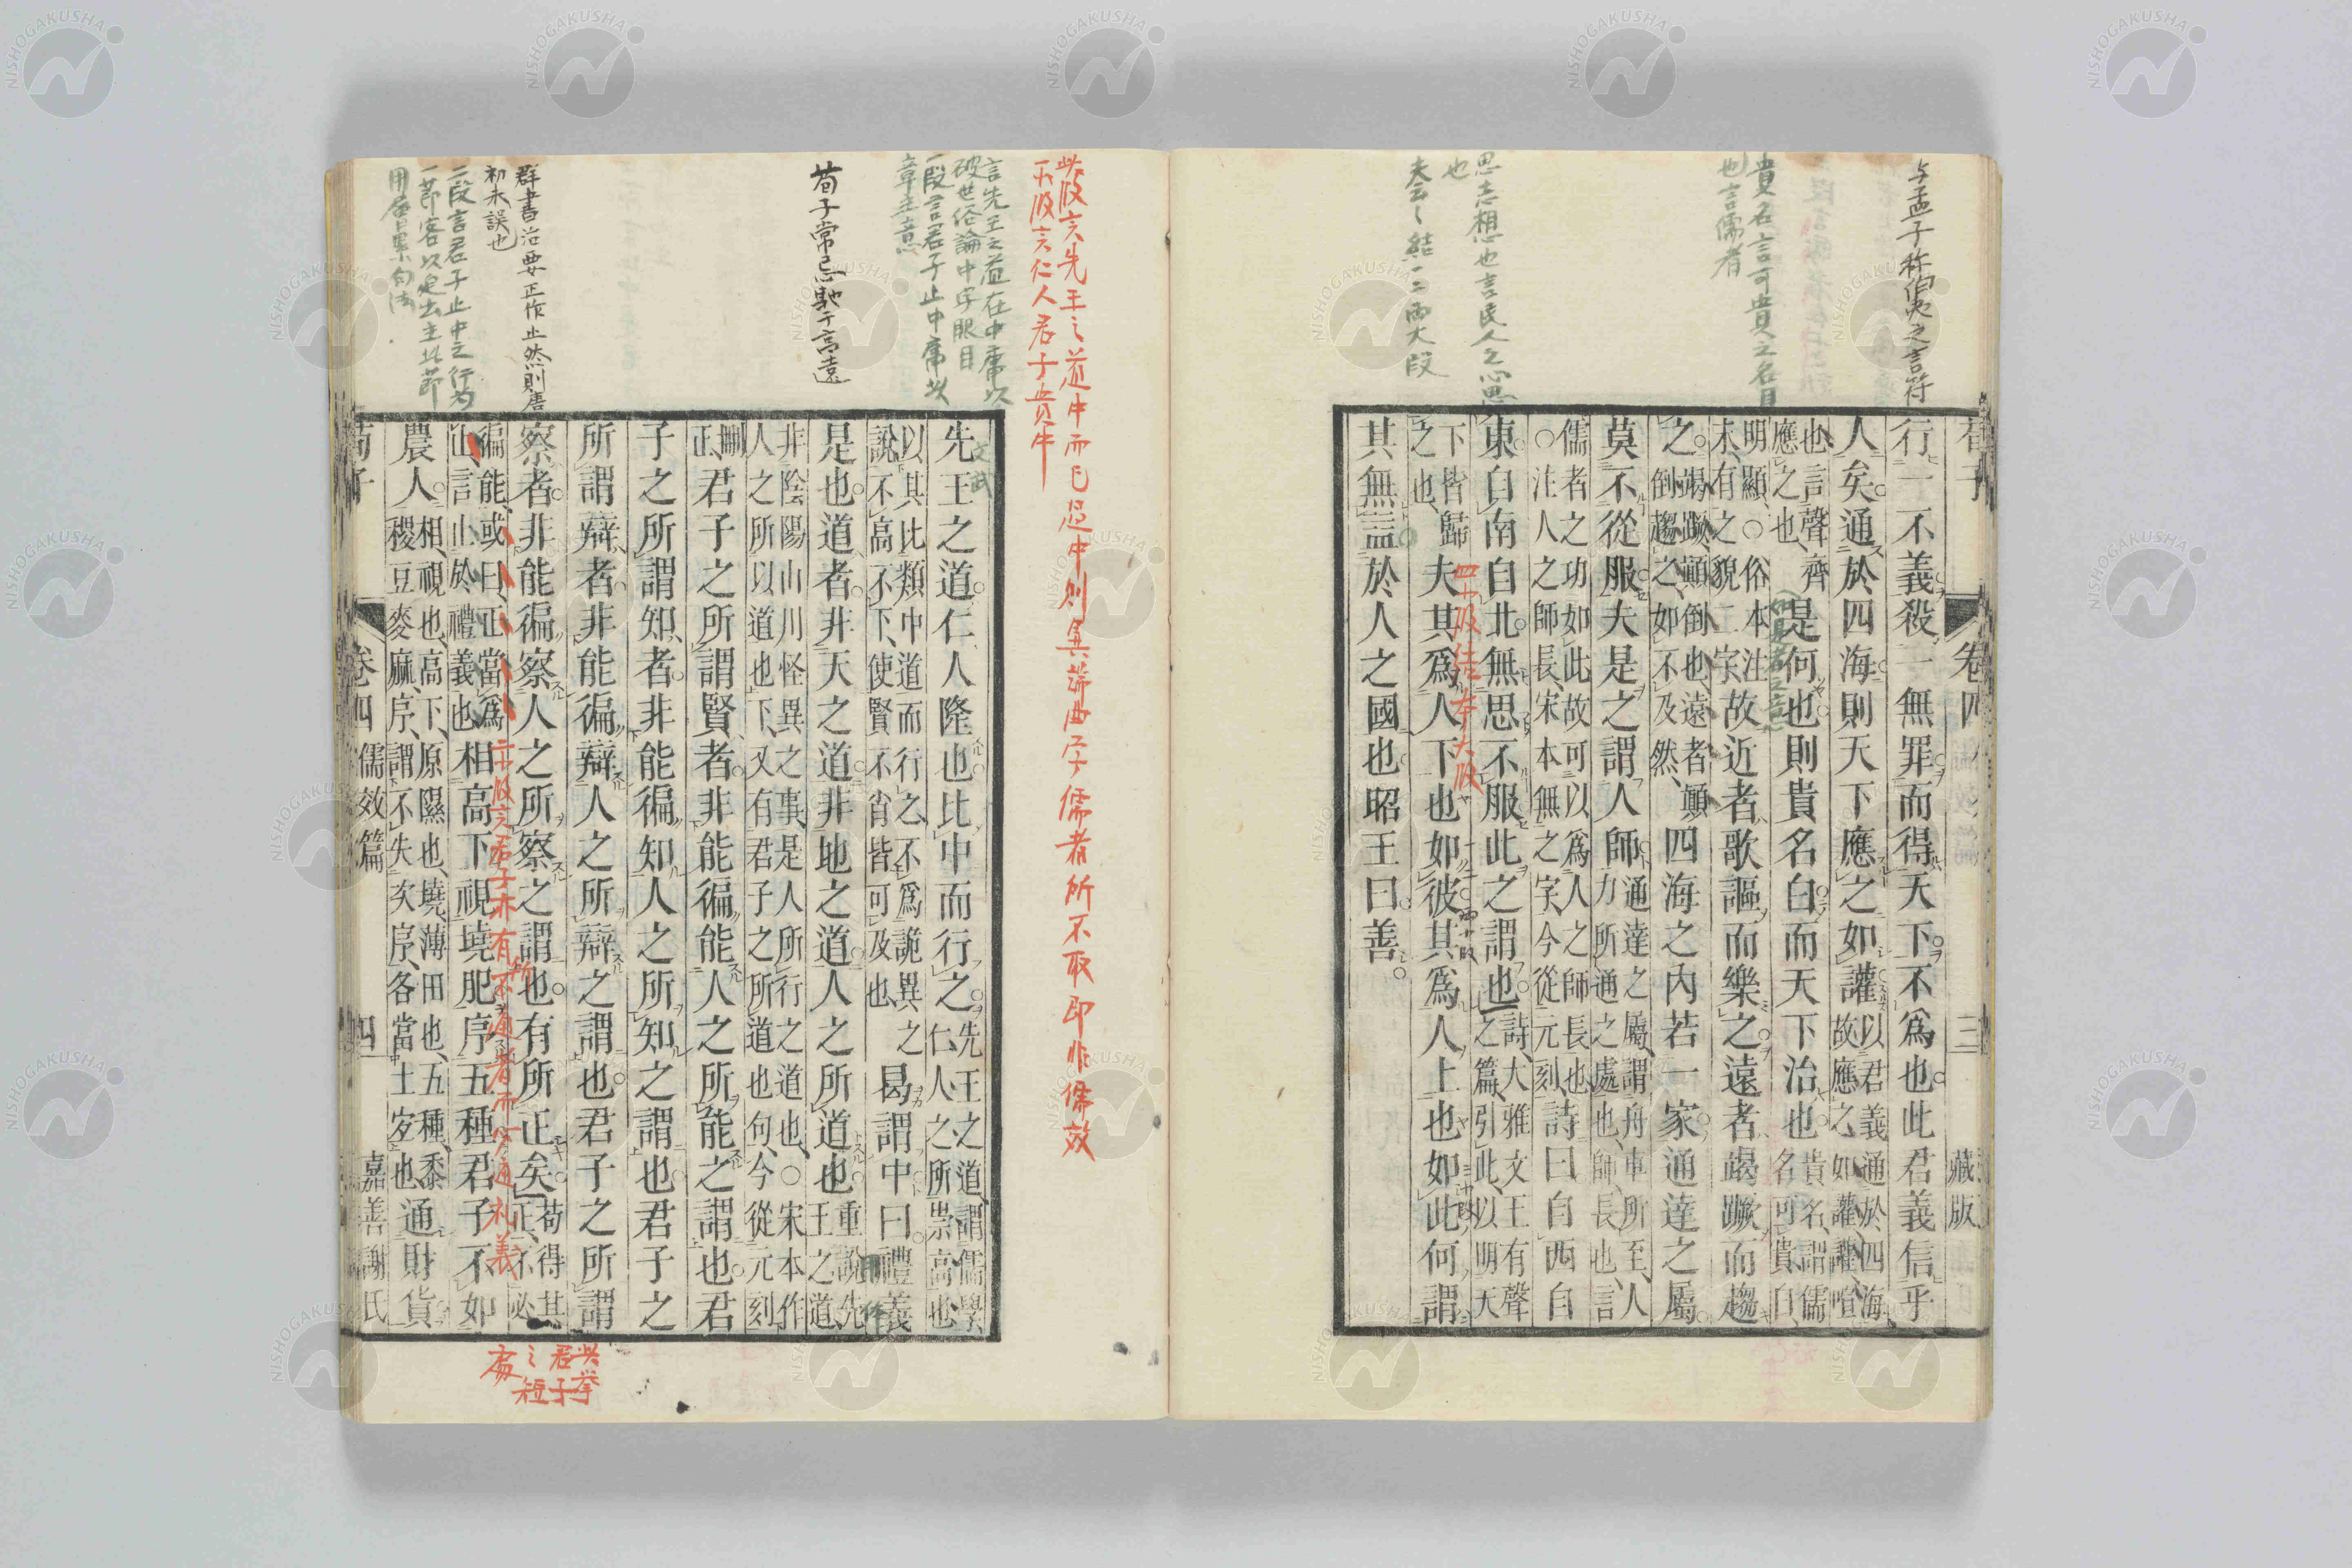 荀子
卷四
三
藏版
与孟子称伯夷之言符
貴名言可貴之名目
也言儒者
思志想也言民人之心思
也
夫云々結一二兩大段
行一不義殺一無罪而得天下不爲也此君義信乎
人矣通於四海則天下應之如讙以君義通於四海
故應之如讙讙喧
也言聲齊
應之也是何也則貴名白而天下治也貴名謂儒
名可貴白
明顯○俗本注
末有之貌二字故近者歌謳而樂之遠者竭蹶而趨
之竭蹶顚倒也遠者顚
倒趨之如不及然四海之內若一家通達之屬
莫不從服夫是之謂人師通達之屬謂舟車所至人
力所通之處也師長也言
儒者之功如此故可以爲人之師長也
○注人之師長宋本無之字今從元刻詩曰自西自
東自南自北無思不服此之謂也詩大雅文王有聲
之篇引此以明天
下皆歸
之也夫其爲人下也如彼其爲人上也如此何謂
其無益於人之國也昭王曰善
此段言先王之道中而已過中則異
下段言仁人君子貴中
儒者所不取即作儒效
言先王之道在中庸以
破世俗論中字眼目
一段言君子止中庸以
章主意
荀子常忌馳于高遠
群書治要正作止然則唐
初未誤也
二段言君子止中之行爲
先王之道仁人隆也比中而行之先王之道謂儒學
仁人之所崇高也
以其比類中道而行之不爲詭異之
說不高不下使賢不肖皆可及也曷謂中曰禮義
是也道者非天之道非地之道人之所道也重說先
王之道
非陰陽山川怪異之事是人所行之道也○宋本作
人之所以道也下又有君子之所道也句今從元刻
刪
正君子之所謂賢者非能徧能人之所能之謂也君
子之所謂知者非能徧知人之所知之謂也君子之
所謂辯者非能徧辯人之所辯之謂也君子之所謂
察者非能徧察人之所察之謂也有所正矣苟得其
正不必
徧能或曰正當爲
止言止於禮義也相高下視墝肥序五種君子不如
農人相視也高下原隰也墝薄田也五種黍
稷豆麥麻序謂不失次序各當土宜也通財貨
此挙
君子
之短
處
荀子
卷四
儒效篇
四
嘉善謝氏